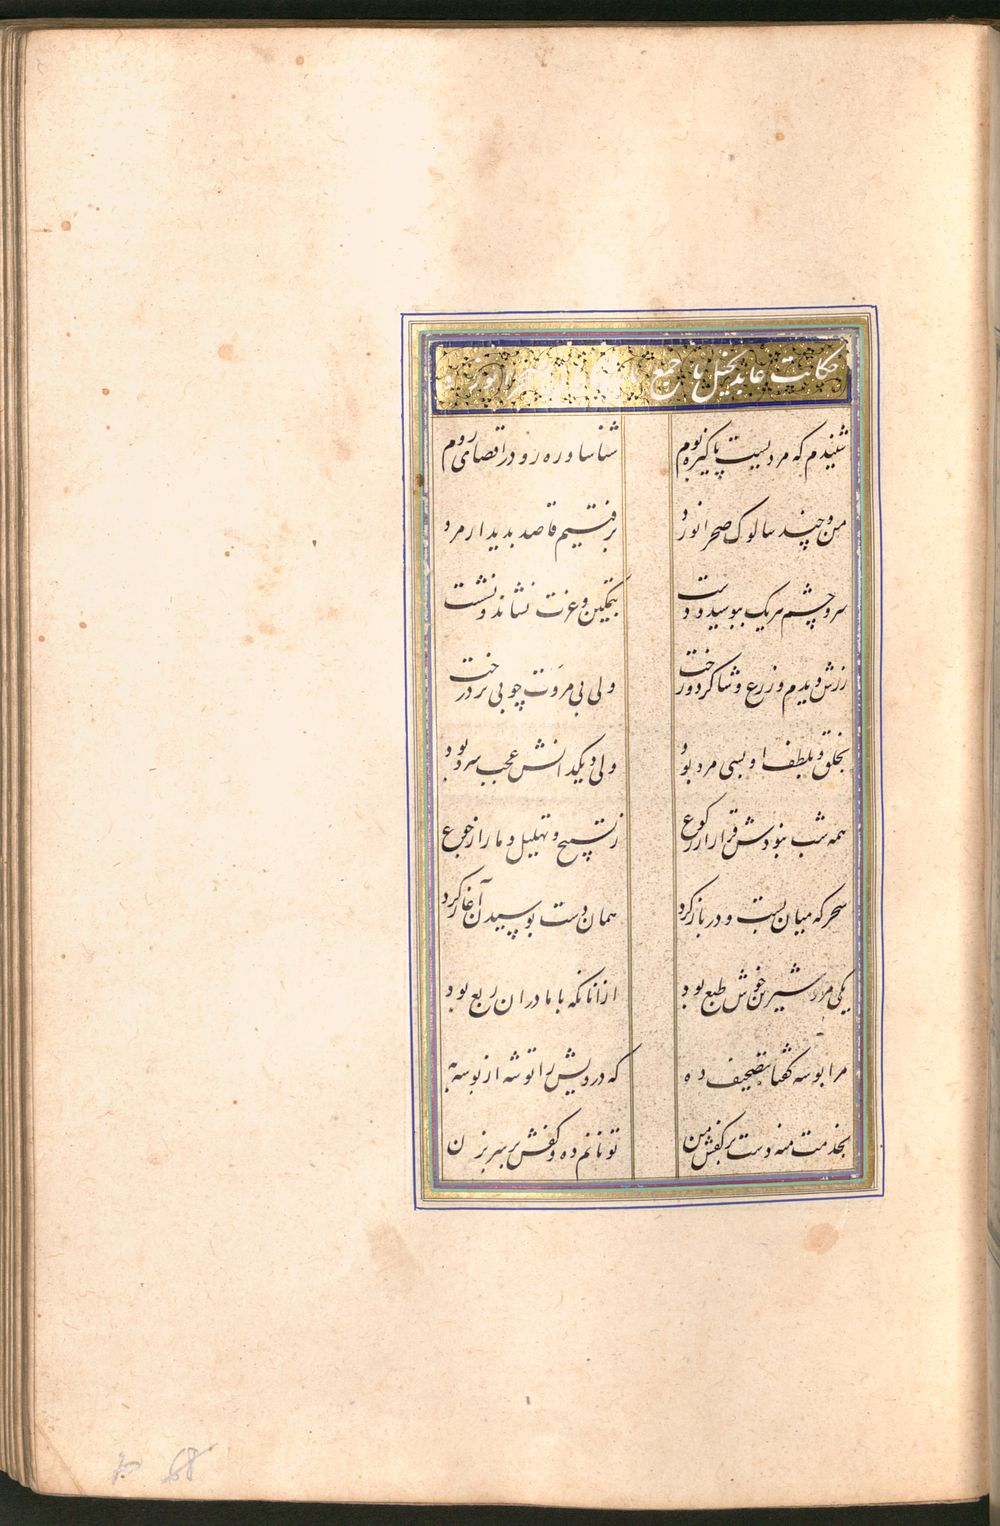 حکایت عابد بخیل با جمع
شنیدم که مردیست پاکیزه بوم شناسا و ره رو در اقصای روم
من و چند سالوک صحرا نورد برفتیم قاصد بدیدار مرد
سر و چشم هر یک ببوسید و دست بتمکین و عزت نشاند و نشست
زرش دیدم و زرع و شاکرد و رخت ولی بی مروت چو بی بر درخت
بخلق و بلطف او بسی مرد بود ولی دیکدانش عجب سرد بود
همه شب نبودش قرار از رکوع ز تسبیح و تهلیل و ما را ز جوع
سحر که میان بست و در باز کرد همان دست بوسیدن آغاز کرد
یکی مرد شیرین خوش طبع بود از انانکه با ما دران ربع بود
مرا بوسه کفتا بتصحیف ده که درویش را توشه از بوسه به
بخدمت منه دست بر کفش من تو نانم ده و کفش بر سر بزن
68